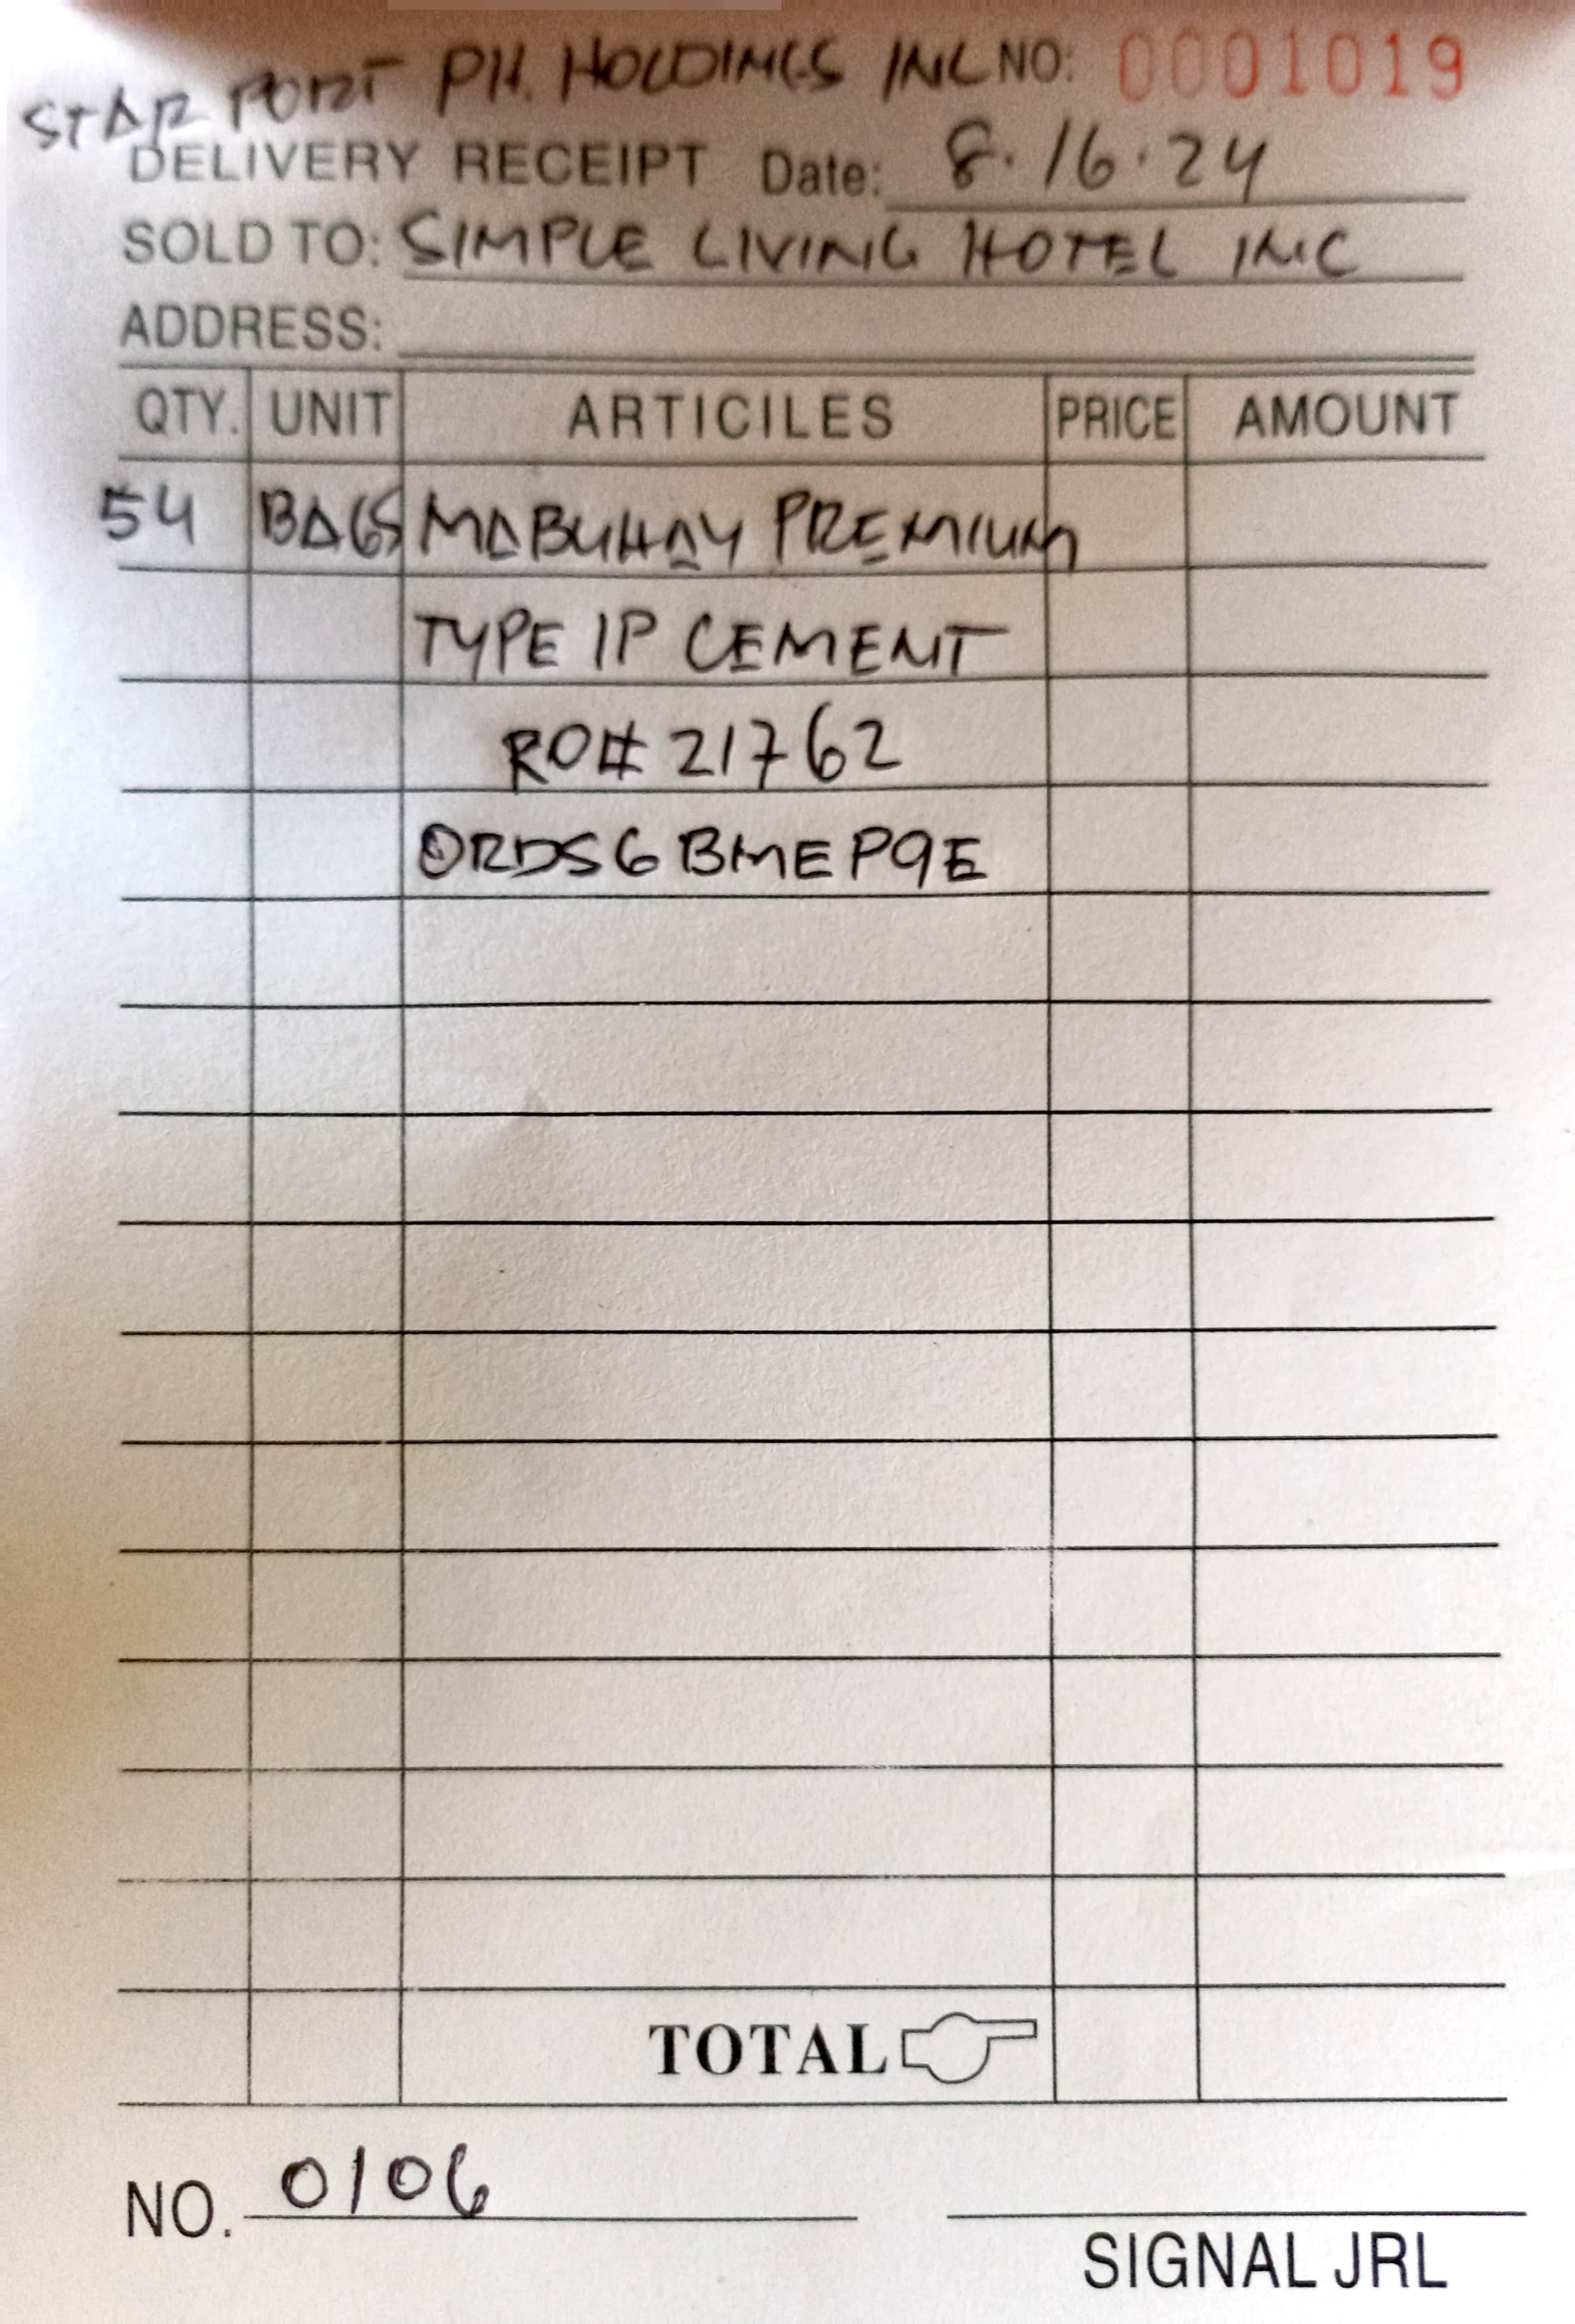 STAR PORT PH. HOLDINGS INC NO: 0001019
DELIVERY RECEIPT Date: 8.16.24
SOLD TO: SIMPLE LIVING HOTEL INC
ADDRESS:
QTY. UNIT ARTICILES PRICE AMOUNT
54 BAGS MABUHAY PREMIUM
TYPE 1P CEMENT
RO# 21762
ORDS6BMEP9E
TOTAL
NO. 0106
SIGNAL JRL